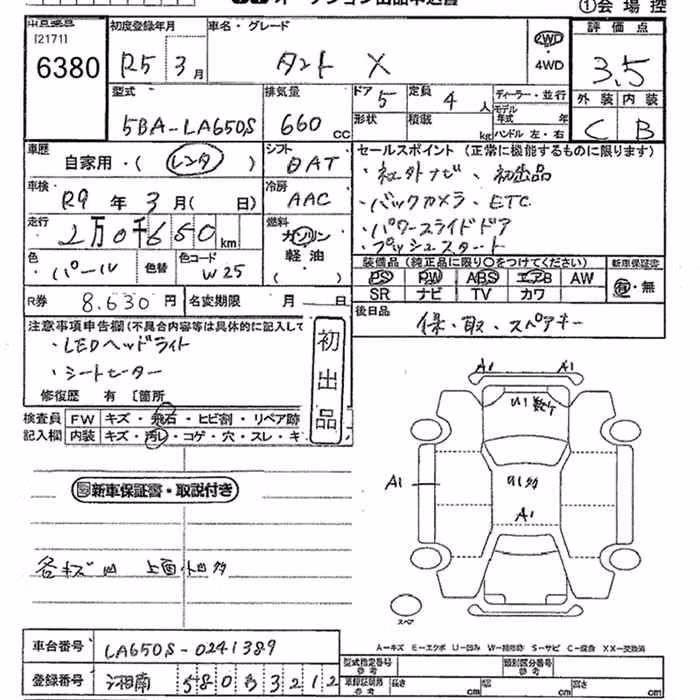 オークション出品申込書
①会場控
[2171]
6380
初度登録年月
R5 3月
車名・グレード
タント X
2WD
・
4WD
評価点
3.5
外装 内装
C B
型式
5BA-LA650S
排気量
660 cc
ドア 5
形状
定員 4 人
積載 kg
ディーラー・並行
モデル年式 年
ハンドル 左・右
車歴
自家用・(レンタ)
シフト
DAT
車検
R9年 3月( 日)
冷房
AAC
走行
2万0千650km
燃料
ガソリン
軽油
( )
色
パール
色替
色コード
W25
R券 8.630円
名変期限 月 日
セールスポイント (正常に機能するものに限ります)
・社外ナビ、初出品
・バックカメラ、ETC
・パワースライドドア
・プッシュスタート
装備品 (純正品に限り○をつけてください)
新車保証書
PS PW ABS エアB AW
SR ナビ TV カワ
有・無
後日品
保・取・スペアキー
注意事項申告欄(不具合内容等は具体的に記入して
・LEDヘッドライト
・シートヒーター
修復歴 有 [箇所
初出品
検査員 FW キズ・飛石・ヒビ割・リペア跡
記入欄 内装 キズ・汚レ・コゲ・穴・スレ・キ
新車保証書・取説付き
各キズ凹 上面小凹多
A1 A1
U1数ケ
A1
U1多
A1
スペア
A=キズ E=エクボ U=凹み W=補修跡 S=サビ C=腐食 XX=交換済
車台番号 LA650S-0241389
登録番号 湘南 580 あ 3212
型式指定番号
参考
類別区分番号
参考
車検証記載
参考
長さ cm 幅 cm 高さ cm